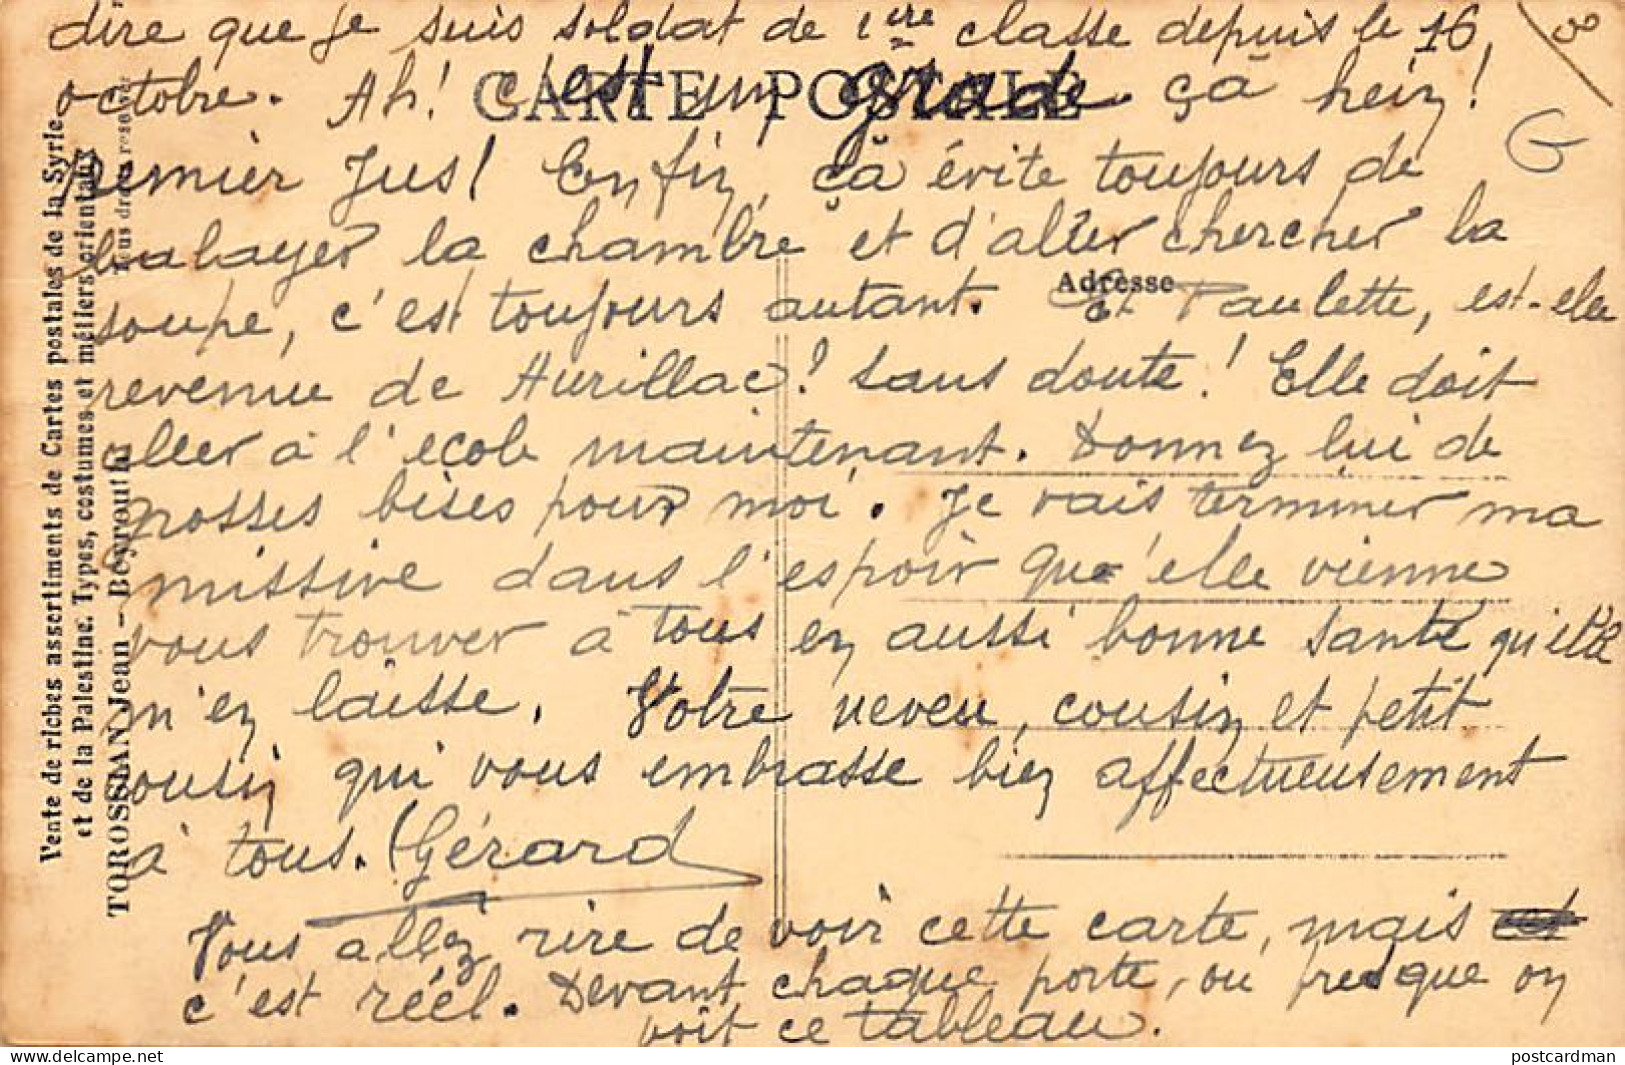 dire que je suis soldat de 1ère classe depuis le 16
octobre. Ah! c'est un grade çà hein!
CARTE POSTALE
Premier Jus! Enfin, çà évite toujours de
balayer la chambre et d'aller chercher la
Adresse
soupe, c'est toujours autant. Et Paulette, est-elle
revenue de Aurillac? Sans doute! Elle doit
aller à l'école maintenant. Donnez lui de
grosses bises pour moi. Je vais terminer ma
missive dans l'espoir qu'elle vienne
vous trouver à tous en aussi bonne santé qu'elle
m'en laisse. Votre neveu, cousin et petit
cousin qui vous embrasse bien affectueusement
à tous. Gérard
Vous allez rire de voir cette carte, mais
c'est réel. Devant chaque porte, ou presque on
voit ce tableau.
Vente de riches assortiments de Cartes postales de la Syrie
et de la Palestine. Types, costumes et métiers orientaux
TOROSSIAN Jean – Beyrouth
Tous droits reservés
G
postcardman